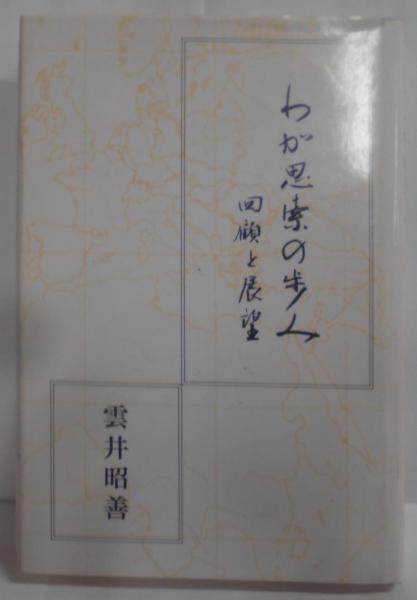 わが思索の歩み
回顧と展望
雲井昭善